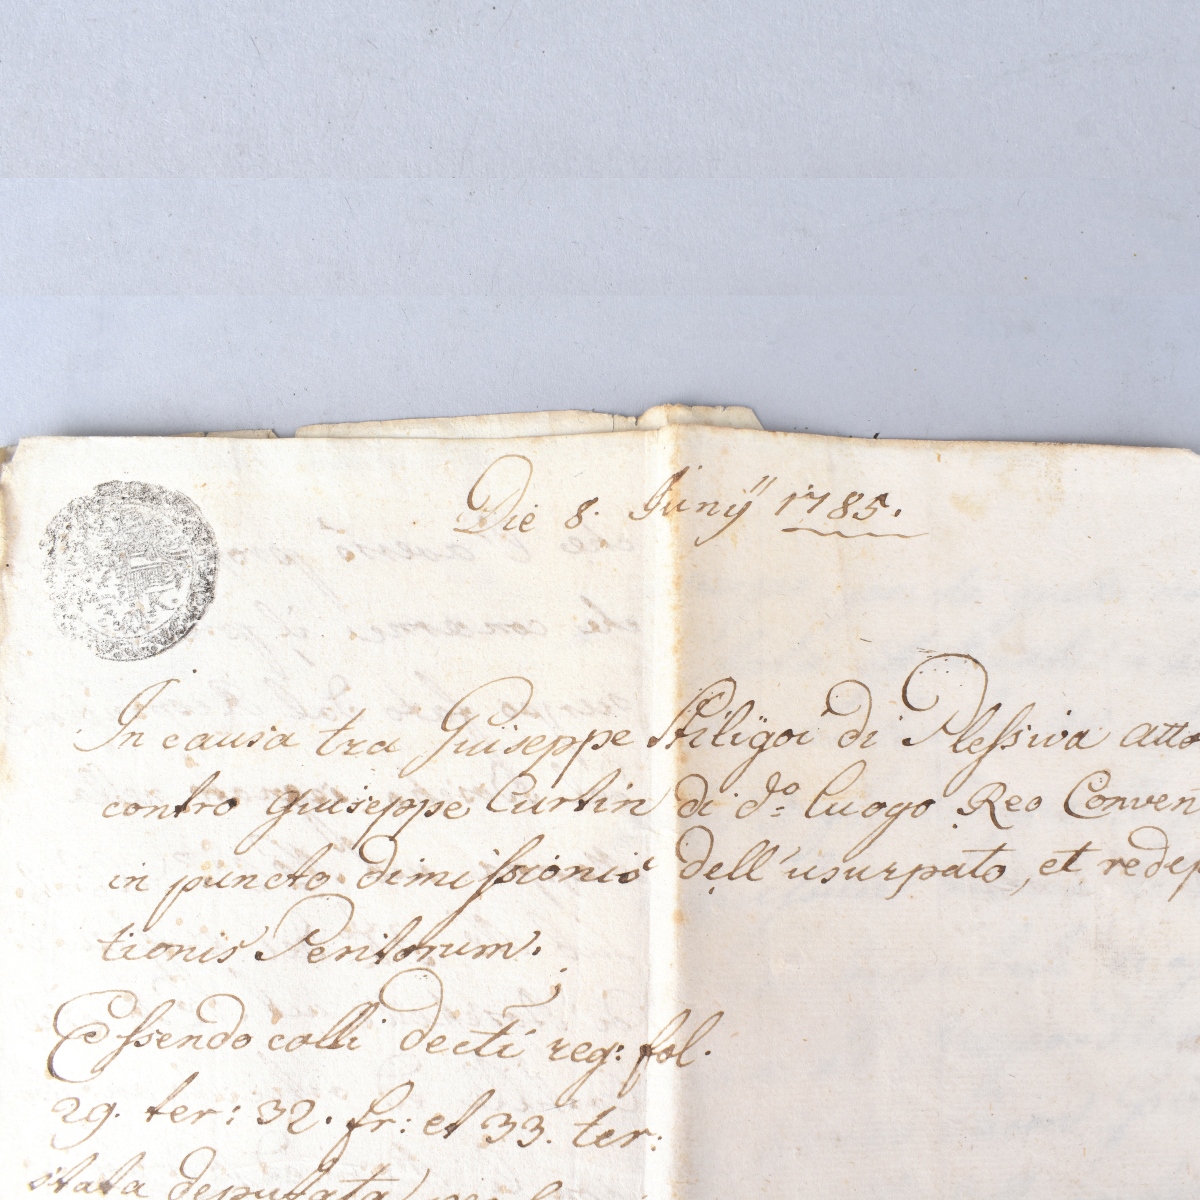 Die 8. Junÿ 1785.
In causa tra Giuseppe Filigoi di Plessiva atto
contro Giuseppe Curtin di do: luogo Reo Conven
in puncto dimissionis dell'usurpato, et redep
tionis Peritorum.
Essendo colli decti reg: fol.
29. ter: 32. fr: et 33. ter:
stata deputata